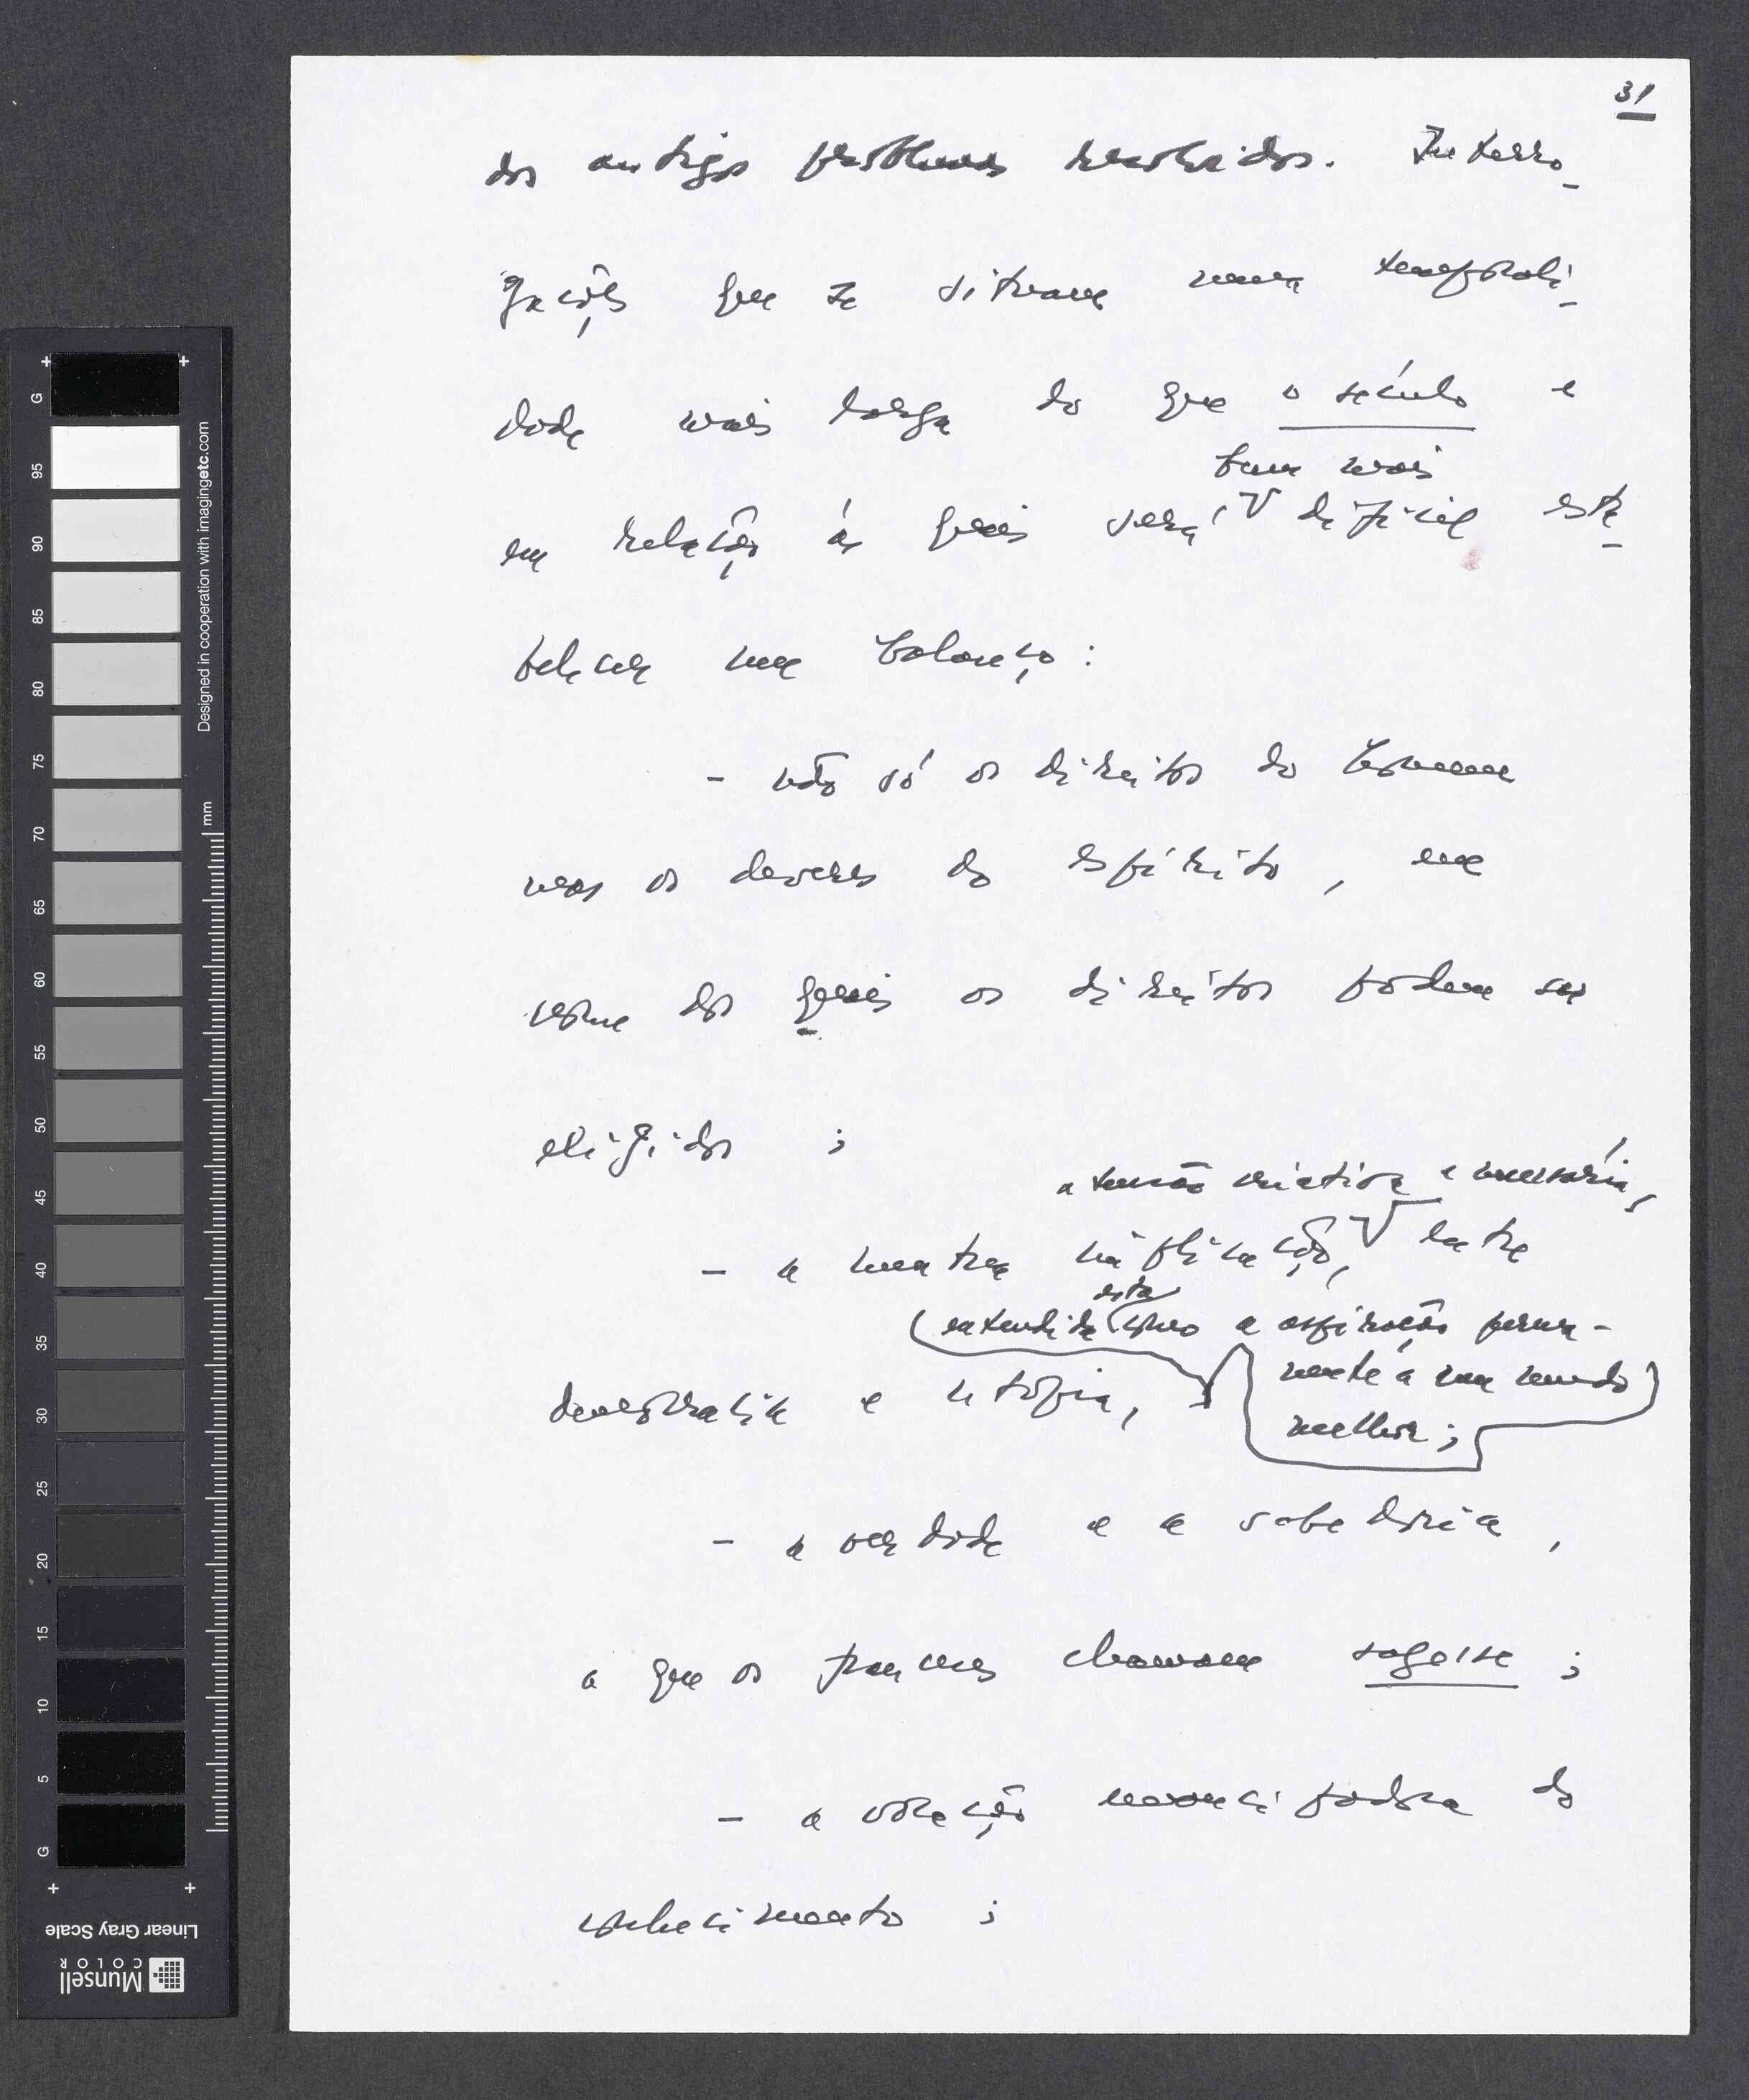 31
dos antigos problemas resolvidos. Interro-
gações que se situam numa temporali-
dade mais larga do que o século e
bem mais
em relação às quais será difícil esta-
belecer um balanço:
- não só os direitos do homem
mas os deveres do espírito, em
nome dos quais os direitos podem ser
exigidos;
a tensão criativa e necessária,
- a mútua implicação, entre
esta
(entendida como a aspiração perma-
democracia e utopia,
nente a um mundo)
melhor;
- a verdade e a sabedoria,
a que os franceses chamam sagesse;
- a vocação emancipadora do
conhecimento;
G
95
90
85
80
75
70
65
60
55
50
45
40
35
30
25
20
15
10
5
G
Designed in cooperation with imagingetc.com
mm
Linear Gray Scale
Munsell
COLOR